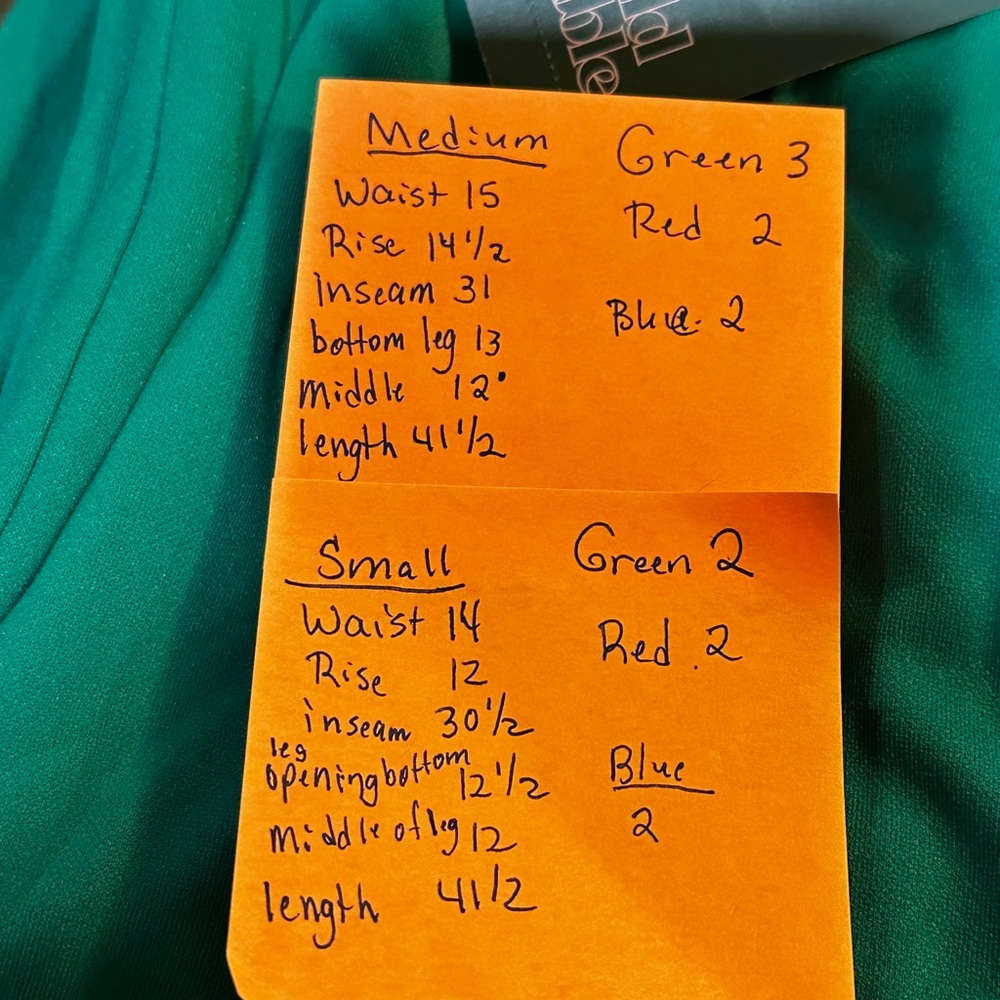 ld
ble
Medium
Waist 15
Rise 14 1/2
inseam 31
bottom leg 13
middle 12"
length 41 1/2
Green 3
Red 2
Blue 2
Small
Waist 14
Rise 12
inseam 30 1/2
leg
opening bottom 12 1/2
Middle of leg 12
length 41 1/2
Green 2
Red 2
Blue
2